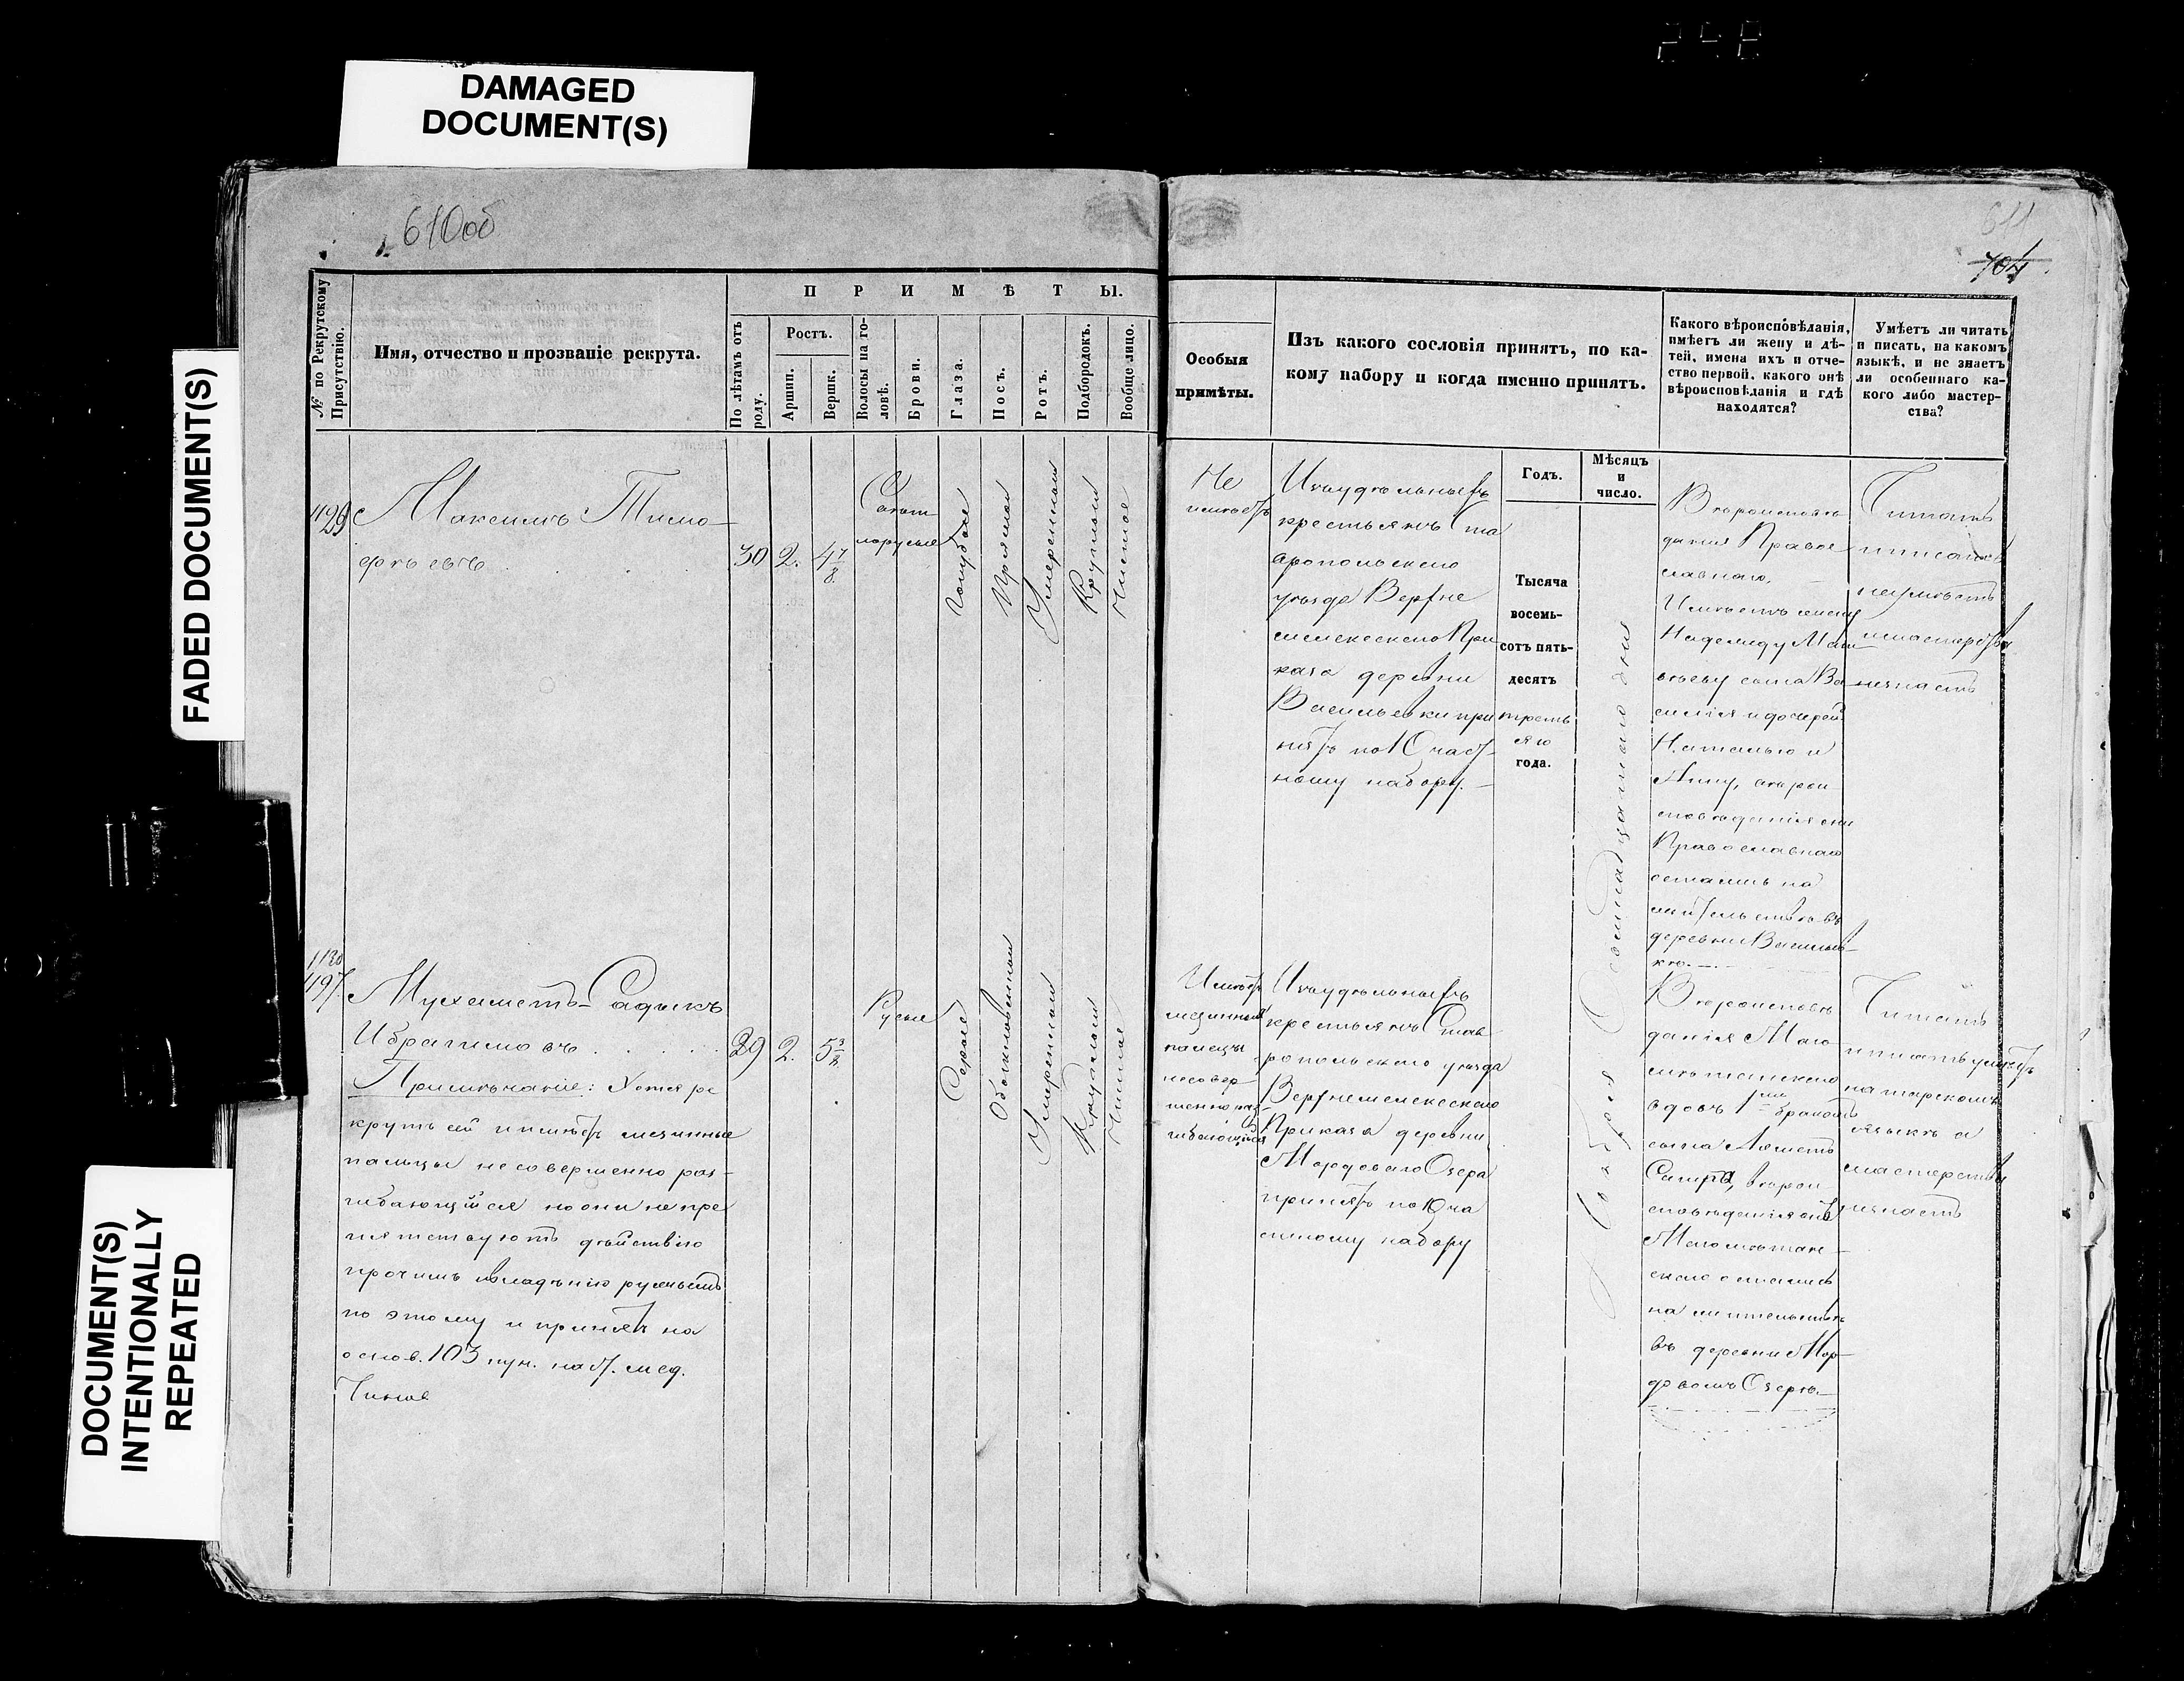 DAMAGED
DOCUMENT(S)
FADED DOCUMENT(S)
DOCUMENT(S)
INTENTIONALLY
REPEATED
610об
611
704
№ по Рекрутскому
Присутствію.
Имя, отчество и прозваніе рекрута.
ПРИМѢТЫ.
По лѣтамъ отъ
роду.
Ростъ.
Аршин.
Вершк.
Волосы на го-
ловѣ.
Брови.
Глаза.
Носъ.
Ротъ.
Подбородокъ.
Вообще лицо.
Особыя
примѣты.
Изъ какого сословія принятъ, по ка-
кому набору и когда именно принятъ.
Какого вѣроисповѣданія,
имѣетъ ли жену и дѣ-
тей, имена ихъ и отче-
ство первой, какого онѣ
вѣроисповѣданія и гдѣ
находятся?
Умѣетъ ли читать
и писать, на какомъ
языкѣ, и не знаетъ
ли особеннаго ка-
кого либо мастер-
ства?
Годъ.
Мѣсяцъ
и
число.
Максимъ Тимо-
фѣевъ
30
2.
4 7/8
Голубые
Прямой
Умеренный
Круглый
Чистое
Не
имѣетъ
Изъ удѣльныхъ
крестьянъ Ста
вропольскаго
уѣзда Верхне
мелекескаго При
каза деревни
Васильевки при
нятъ по 10 част-
ному набору.
Тысяча
восемь-
сотъ пять-
десять
треть
яго
года.
Ноября Осмнадцатаго дня
Вѣроисповѣ
данія Право
славнаго,
Имѣетъ жену
Надежду Мат
вѣеву сына Ва
силія и дочерей
Наталью и
Анну, вѣрои
сповѣданія они
Православнаго
остались на
жительствѣ въ
деревни Василье
вкѣ.
Читать
и писать
неумѣетъ
и мастерства
незнаетъ
1130
1197.
Мухаметъ-Садыкъ
Ибрагимовъ
Примѣчаніе: Хотя ре
крутъ сей и имѣетъ мезинные
пальцы несовершенно раз-
гибающійся но они не пре
пятствуютъ дѣйствію
прочимъ и владѣнію ружьемъ
по этому и принятъ на
основ. 103 пун. наст. мед.
Чинов
29
2.
5 3/8
Русые
Серые
Обыкновенный
Умеренный
Круглый
Чистое
Имѣетъ
мезинные
пальцы
несовер-
шенно раз-
гибающійся
Изъ удѣльныхъ
крестьянъ Став-
ропольскаго уѣзда
Верхнемелекескаго
Приказа деревни
Мордоваго Озера
принятъ по 10 ча
стному набору
Вѣроисповѣ
данія Маго-
метанскаго
вдовъ 1ымъ бракомъ
сына Ахметъ
вѣрои
сповѣданія онъ
Магометан-
скаго остались
на жительствѣ
въ деревни Мор-
довомъ Озерѣ.
Читать
и писать умѣетъ
на татарскомъ
языкѣ а
мастерства
незнаетъ